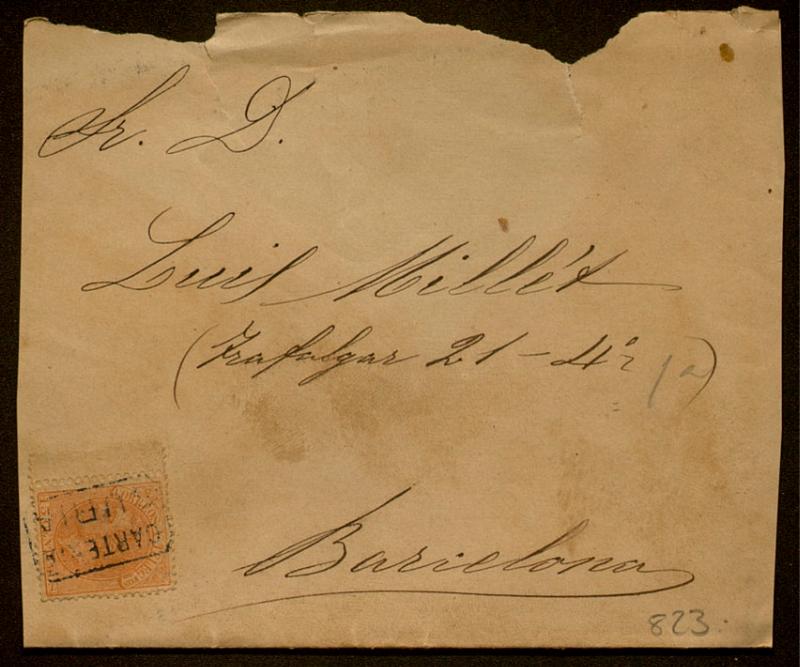 Sr. D.
Luis Millét
(Trafalgar 21 - 4º 1ª)
Barcelona
CARTE
823.